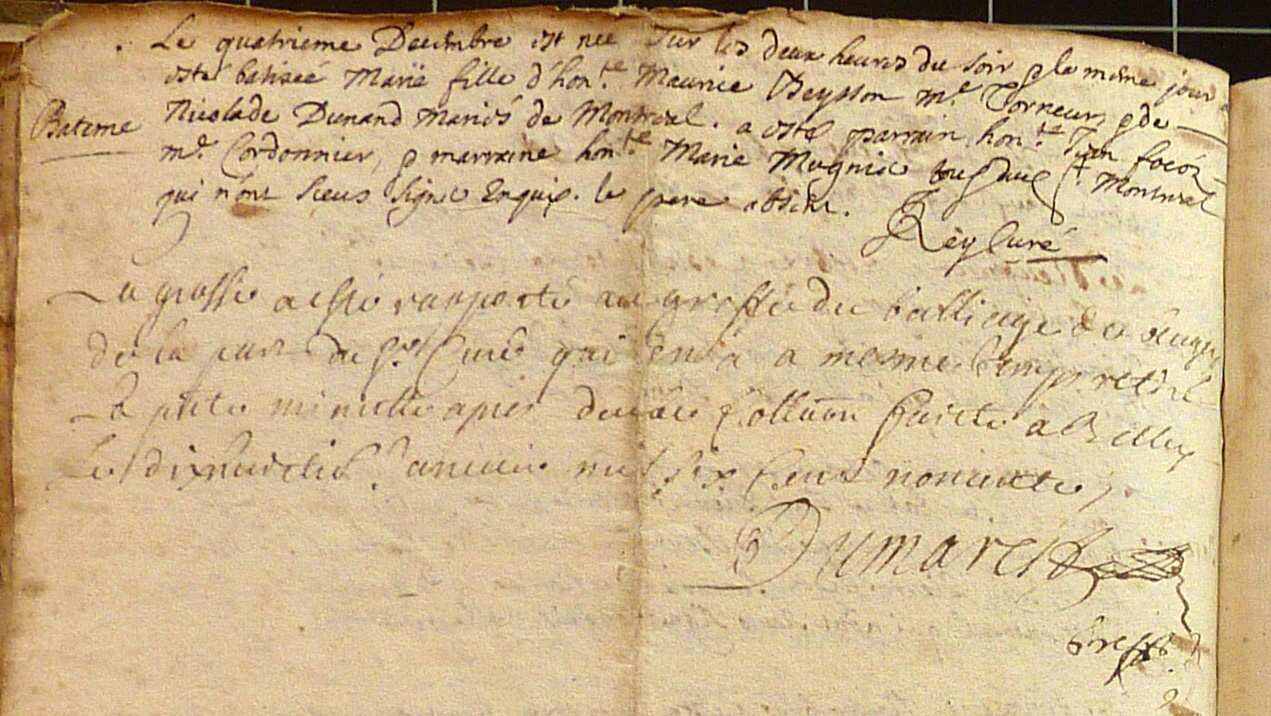 Le quatrieme Decembre est née sur les deux heures du soir & le mesme jour a
esté batiseé Marie fille d'hon.te Maurice Beysson m.e Torneur, & de
Bateme
Nicolade Dunand mariés de Montreal. a esté parrain hon.te Jean
m.e Cordonnier, & marraine hon.te Marie Mugnie tous deux Montreal
qui n'ont sceus signe Enquis. le pere absent.
Rey Curé
La grosse a esté rapporté au greffe du balliage de
de la part du Sr Curé qui en a a mesme temps retiré
La minutte apres deue faicte a Belley
Le janvier mil six cens nonante
Dumarest
Greff.